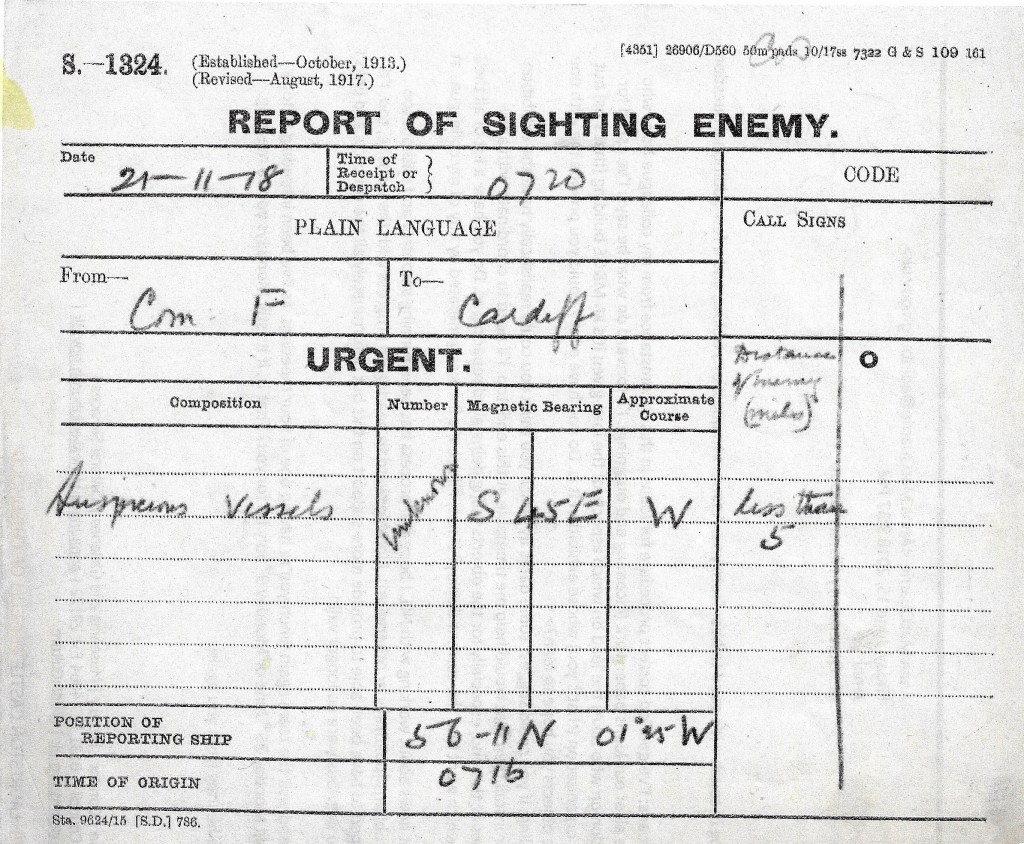 S.—1324. (Established—October, 1913.)
(Revised—August, 1917.)
[4351] 26906/D560 50m pads 10/17ss 7322 G & S 109 161
REPORT OF SIGHTING ENEMY.
Date 21-11-18
Time of Receipt or Despatch 0720
CODE
PLAIN LANGUAGE
CALL SIGNS
From— Com F
To— Cardiff
URGENT.
Distance of Enemy (miles)
O
Composition Number Magnetic Bearing Approximate Course
Suspicious Vessels unknown S 45 E W less than 5
POSITION OF REPORTING SHIP 56-11 N 01°25 W
TIME OF ORIGIN 0716
Sta. 9624/15 [S.D.] 786.